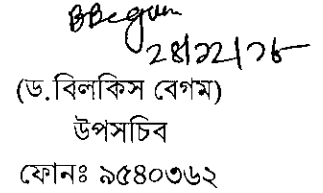 BBegum
28/12/16
(ড.বিলকিস বেগম)
উপসচিব
ফোনঃ ৯৫৪০৩৬২